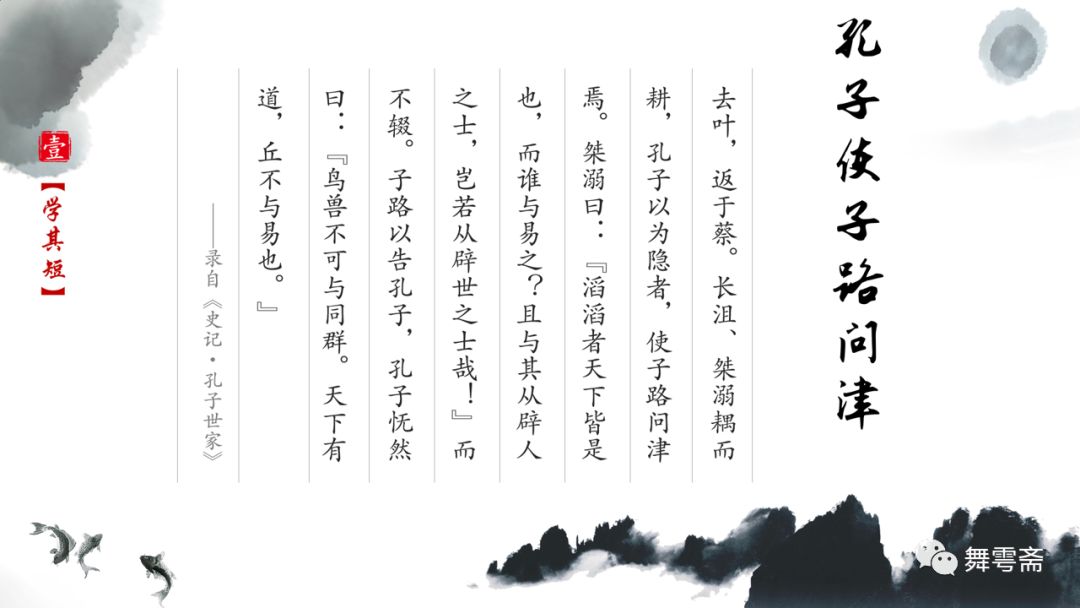 孔子使子路问津
去叶，返于蔡。长沮、桀溺耦而
耕，孔子以为隐者，使子路问津
焉。桀溺曰：『滔滔者天下皆是
也，而谁与易之？且与其从辟人
之士，岂若从辟世之士哉！』而
不辍。子路以告孔子，孔子怃然
曰：『鸟兽不可与同群。天下有
道，丘不与易也。』
——录自《史记·孔子世家》
壹
【学其短】
舞雩斋